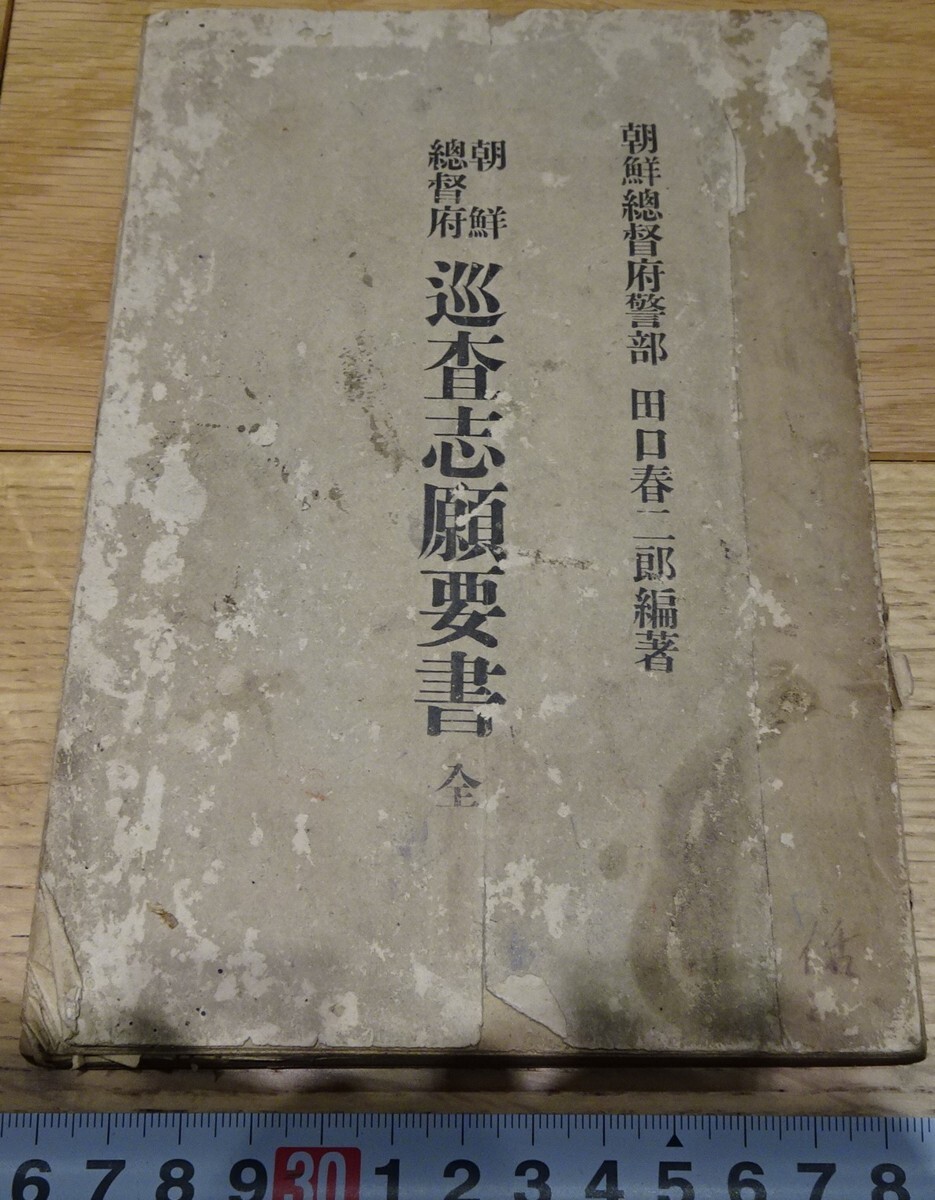 朝鮮總督府警部 田口春二郎編著
朝鮮
總督府
巡査志願要書 全
6 7 8 9 30 1 2 3 4 5 6 7 8